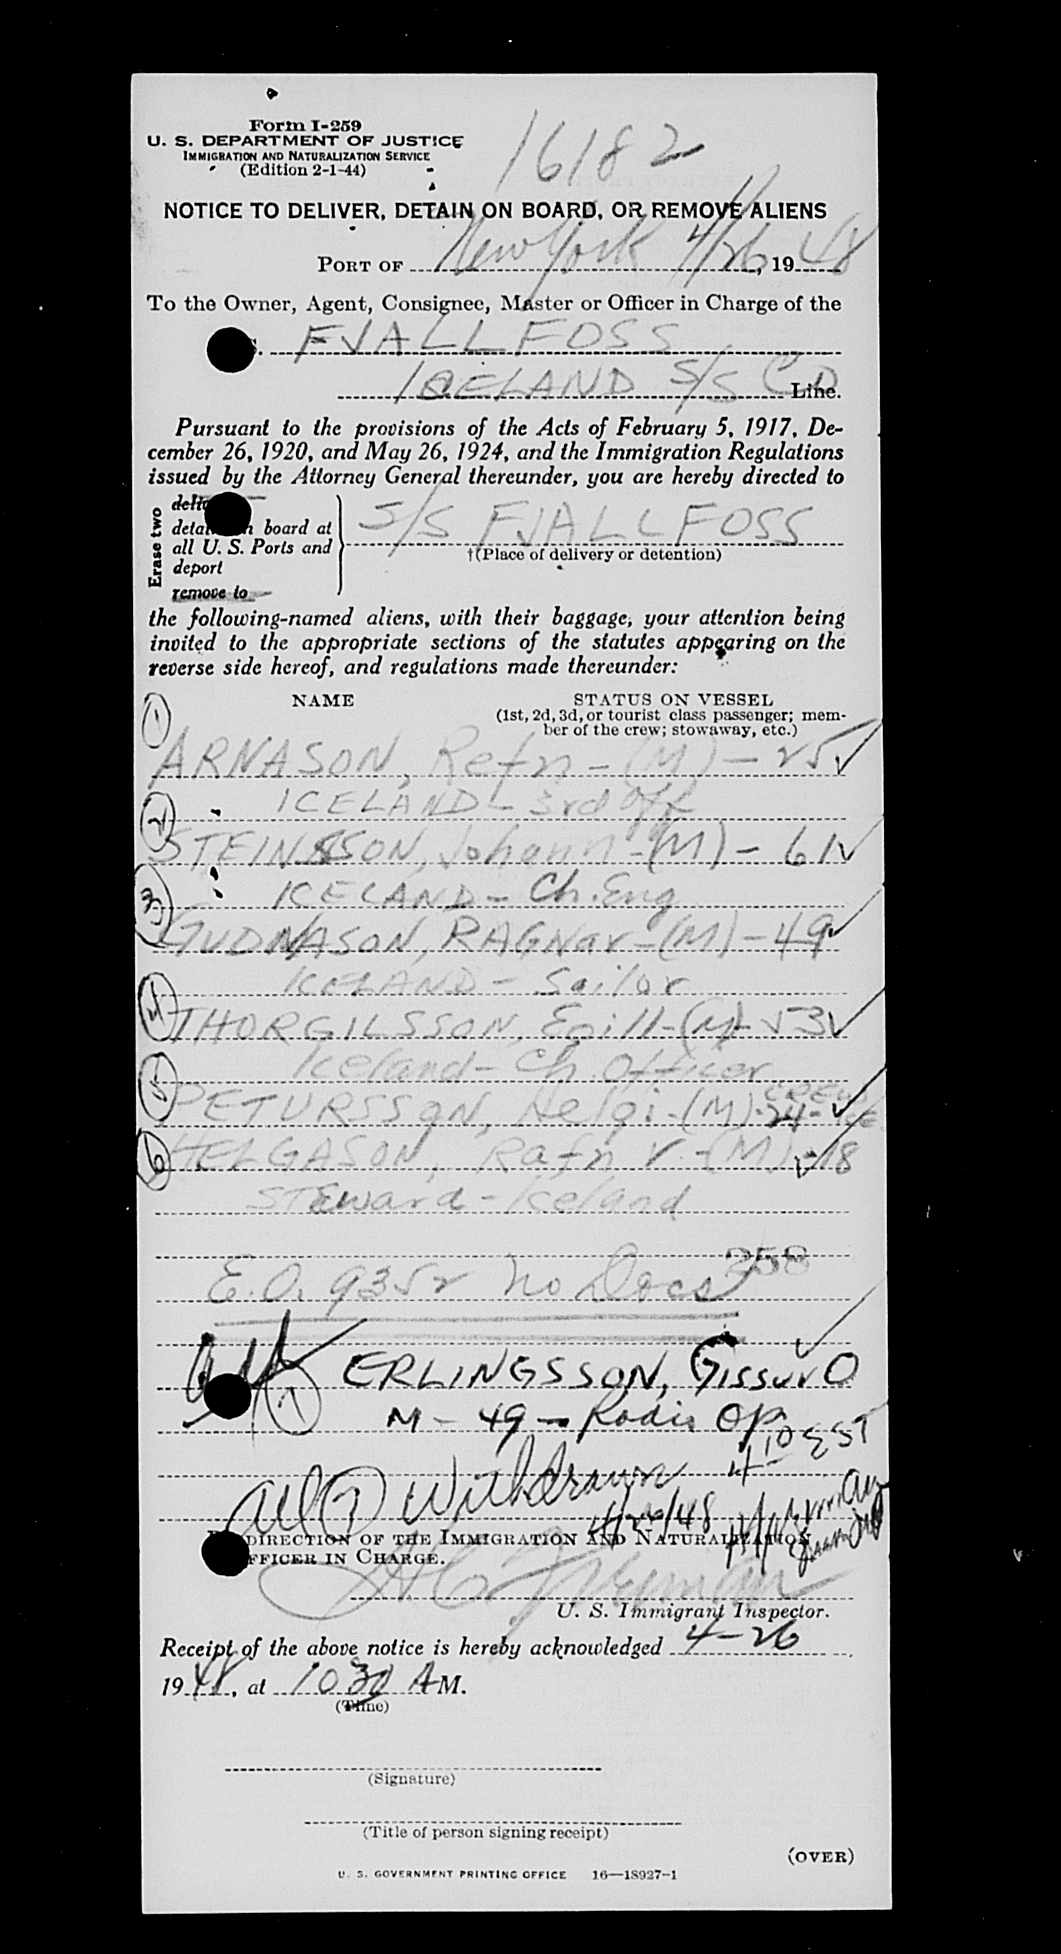 Form I-259
U. S. DEPARTMENT OF JUSTICE
IMMIGRATION AND NATURALIZATION SERVICE
(Edition 2-1-44)
16182
NOTICE TO DELIVER, DETAIN ON BOARD, OR REMOVE ALIENS
PORT OF New York 4/26, 1948
To the Owner, Agent, Consignee, Master or Officer in Charge of the
S. FJALLFOSS
ICELAND S/S CO Line.
Pursuant to the provisions of the Acts of February 5, 1917, De-
cember 26, 1920, and May 26, 1924, and the Immigration Regulations
issued by the Attorney General thereunder, you are hereby directed to
Erase two
detain on board at
all U. S. Ports and
deport
remove to
S/S FJALLFOSS
†(Place of delivery or detention)
the following-named aliens, with their baggage, your attention being
invited to the appropriate sections of the statutes appearing on the
reverse side hereof, and regulations made thereunder:
NAME STATUS ON VESSEL
(1st, 2d, 3d, or tourist class passenger; mem-
ber of the crew; stowaway, etc.)
1 ARNASON, Refn - (M) - 25 ✓
ICELAND - 3rd Off
2 STEINSSON, Johann - (M) - 61 ✓
ICELAND - Ch. Eng
3 GUDNASON, RAGNar - (M) - 49 ✓
ICELAND - Sailor
4 THORGILSSON, Egill - (M) - 53 ✓
Iceland - Ch. Officer
5 PETURSSON, Helgi - (M) - 24 - CREW ICE ✓
6 HELGASON, Rafn V. - (M) - 18 ✓
STEward - Iceland
258
E.O. 9352 No Docs
7 ERLINGSSON, Gissur O ✓
M - 49 - Radio Op
4 10 EST
All 7 Withdrawn
4/26/48
DIRECTION OF THE IMMIGRATION AND NATURALIZATION
OFFICER IN CHARGE.
U. S. Immigrant Inspector.
Receipt of the above notice is hereby acknowledged 4-26
1948, at 10 30 AM.
(Time)
(Signature)
(Title of person signing receipt)
(OVER)
U. S. GOVERNMENT PRINTING OFFICE 16—18927-1